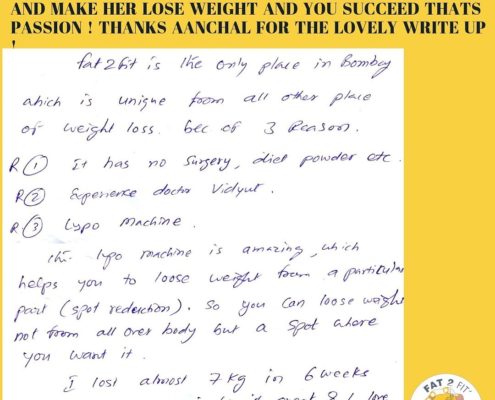 AND MAKE HER LOSE WEIGHT AND YOU SUCCEED THATS
PASSION ! THANKS AANCHAL FOR THE LOVELY WRITE UP
!
fat2fit is the only place in Bombay
which is unique from all other place
of weight loss. bec of 3 Reason.
R① It has no surgery, diet powder etc.
R② Experience doctor Vidyut.
R③ Lypo Machine.
The lypo machine is amazing, which
helps you to loose weight from a particular
part (spot reduction). So you can loose weight
not from all over body but a spot where
you want it.
I lost almost 7 kg in 6 weeks
FAT 2 FIT